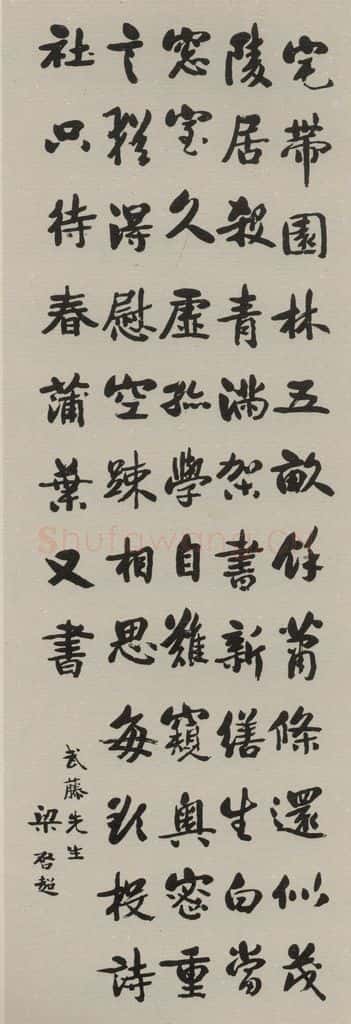 宅帶園林五畝餘蕭條還似茂
陵居殺青滿架書新繕生白當
窓室久虛孤學自難窺奧密重
言猶得慰空疎相思每欲投詩
社只待春蒲葉又書
武藤先生
梁啓超